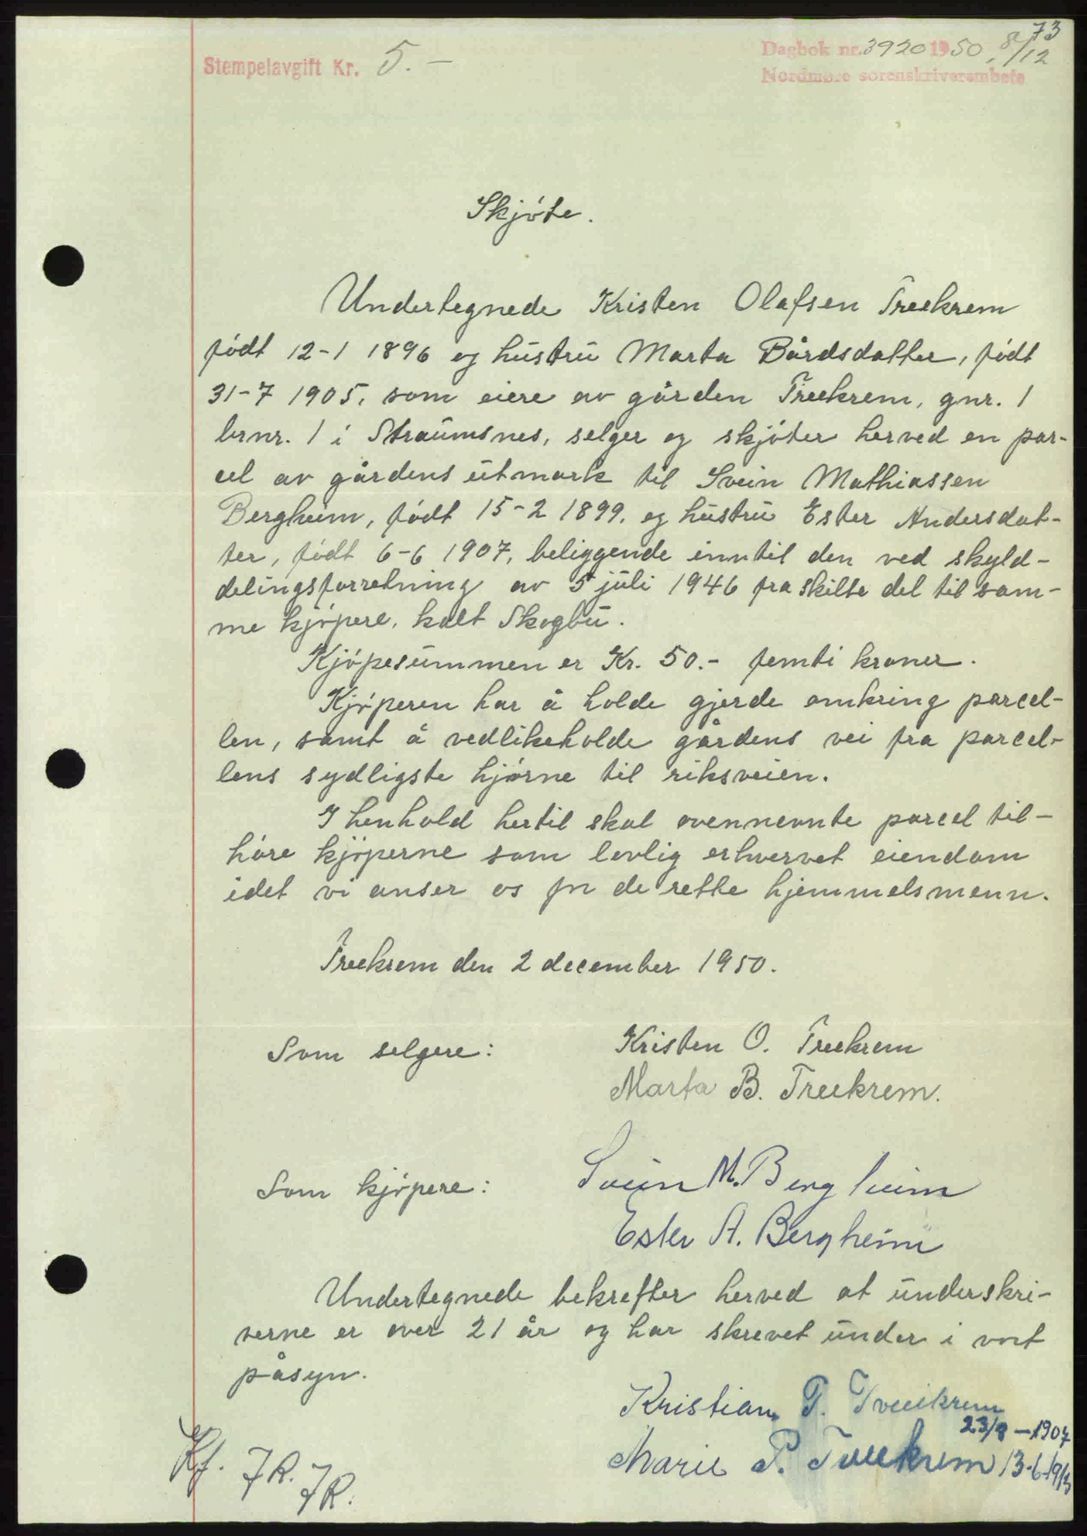 73
Stempelavgift Kr. 5.-
Dagbok nr. 3920 1950, 8/12
Nordmøre sorenskriverembete
Skjøte.
Undertegnede Kristen Olafsen Treekrem
født 12-1 1896 og hustru Marta Bårdsdatter, født
31-7 1905, som eiere av gården Treekrem, gnr. 1
brnr. 1 i Straumsnes, selger og skjøter herved en par-
cel av gårdens utmark til Svein Mathiassen
Bergheim, født 15-2 1899, og hustru Ester Andersdat-
ter, født 6-6 1907, beliggende inntil den ved skyld-
delingsforretning av 5 juli 1946 fraskilte del til sam-
me kjøpere, kalt Skogbu.
Kjøpesummen er Kr. 50.- femti kroner.
Kjøperen har å holde gjerde omkring parcel-
len, samt å vedlikeholde gårdens vei fra parcel-
lens sydligste hjørne til riksveien.
I henhold hertil skal ovennevnte parcel til-
høre kjøperne som lovlig erhvervet eiendom
idet vi anser os for de rette hjemmelsmenn.
Treekrem den 2 december 1950.
Som selgere:
Kristen O. Treekrem
Marta B. Treekrem.
Som kjøpere:
Svein M. Bergheim
Ester A. Bergheim
Undertegnede bekrefter herved at underskri-
verne er over 21 år og har skrevet under i vort
påsyn.
Kristian P. Tveekrem
23/8 - 1907
Marie P. Tveekrem 13-6-1913
Kf. JR. JR.